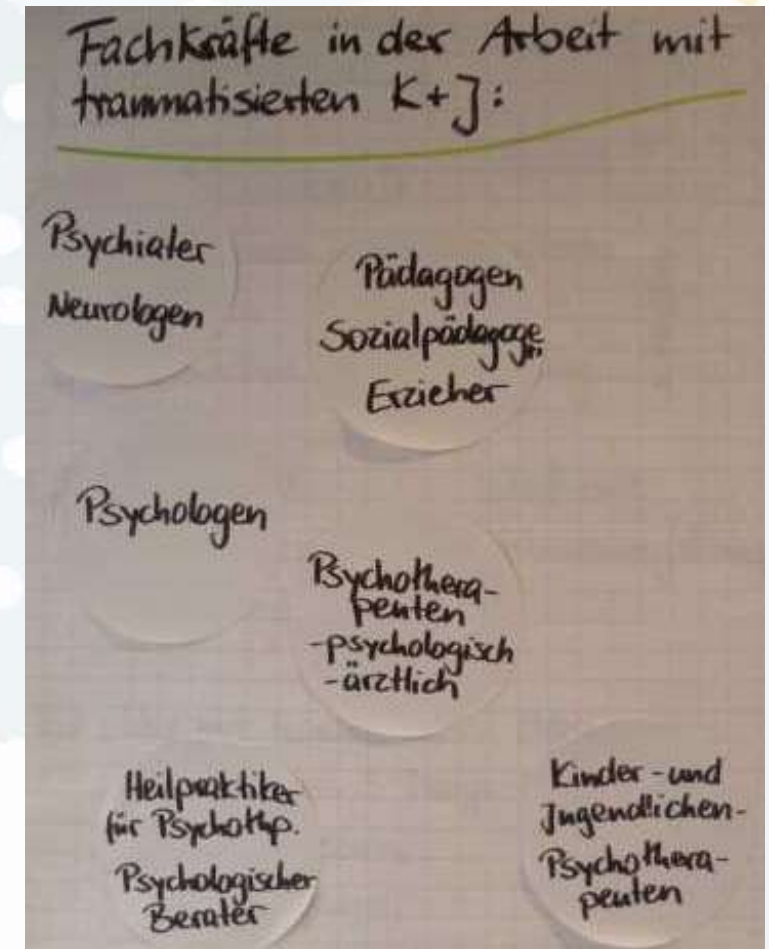 Fachkräfte in der Arbeit mit
traumatisierten K+J:
Psychiater
Neurologen
Pädagogen
Sozialpädagogen
Erzieher
Psychologen
Psychothera-
peuten
-psychologisch
-ärztlich
Heilpraktiker
für Psychothp.
Psychologischer
Berater
Kinder-und
Jugendlichen-
Psychothera-
peuten